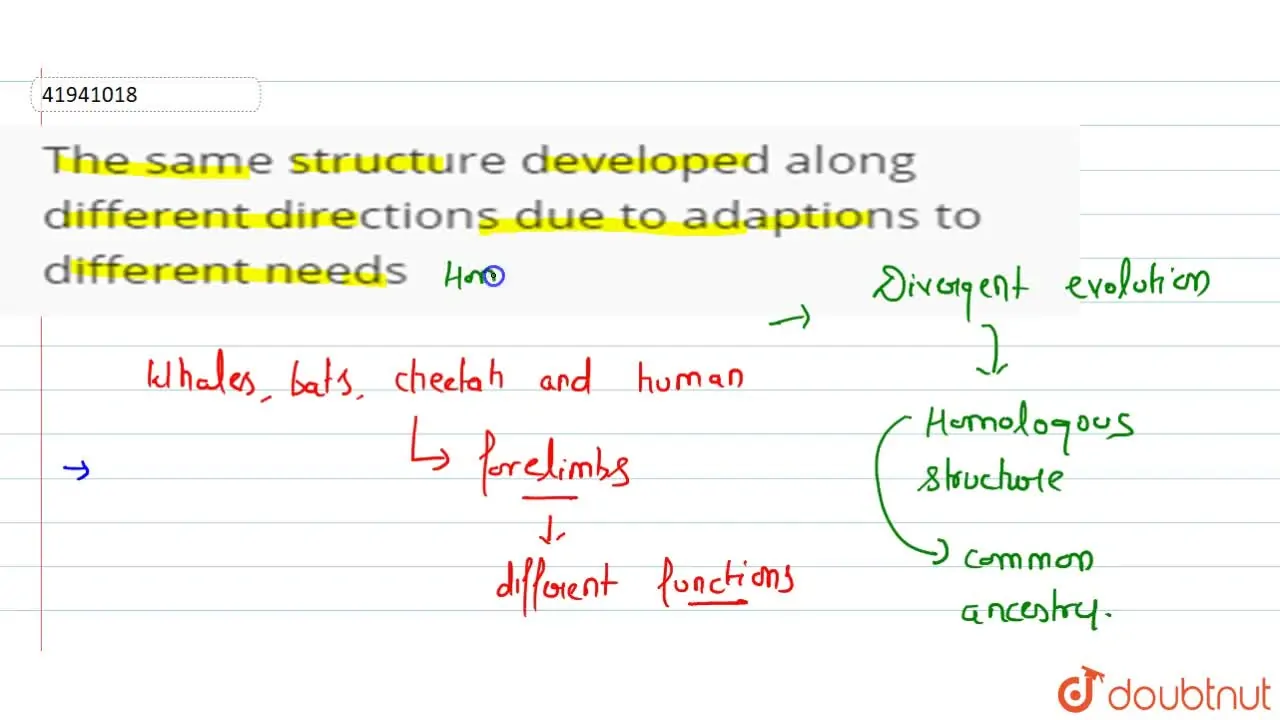 41941018
The same structure developed along
different directions due to adaptions to
different needs Hom
→ Divergent evolution
Whales, bats, cheetah and human
Homologous
structure
→ forelimbs
→
different functions
common
ancestry.
doubtnut